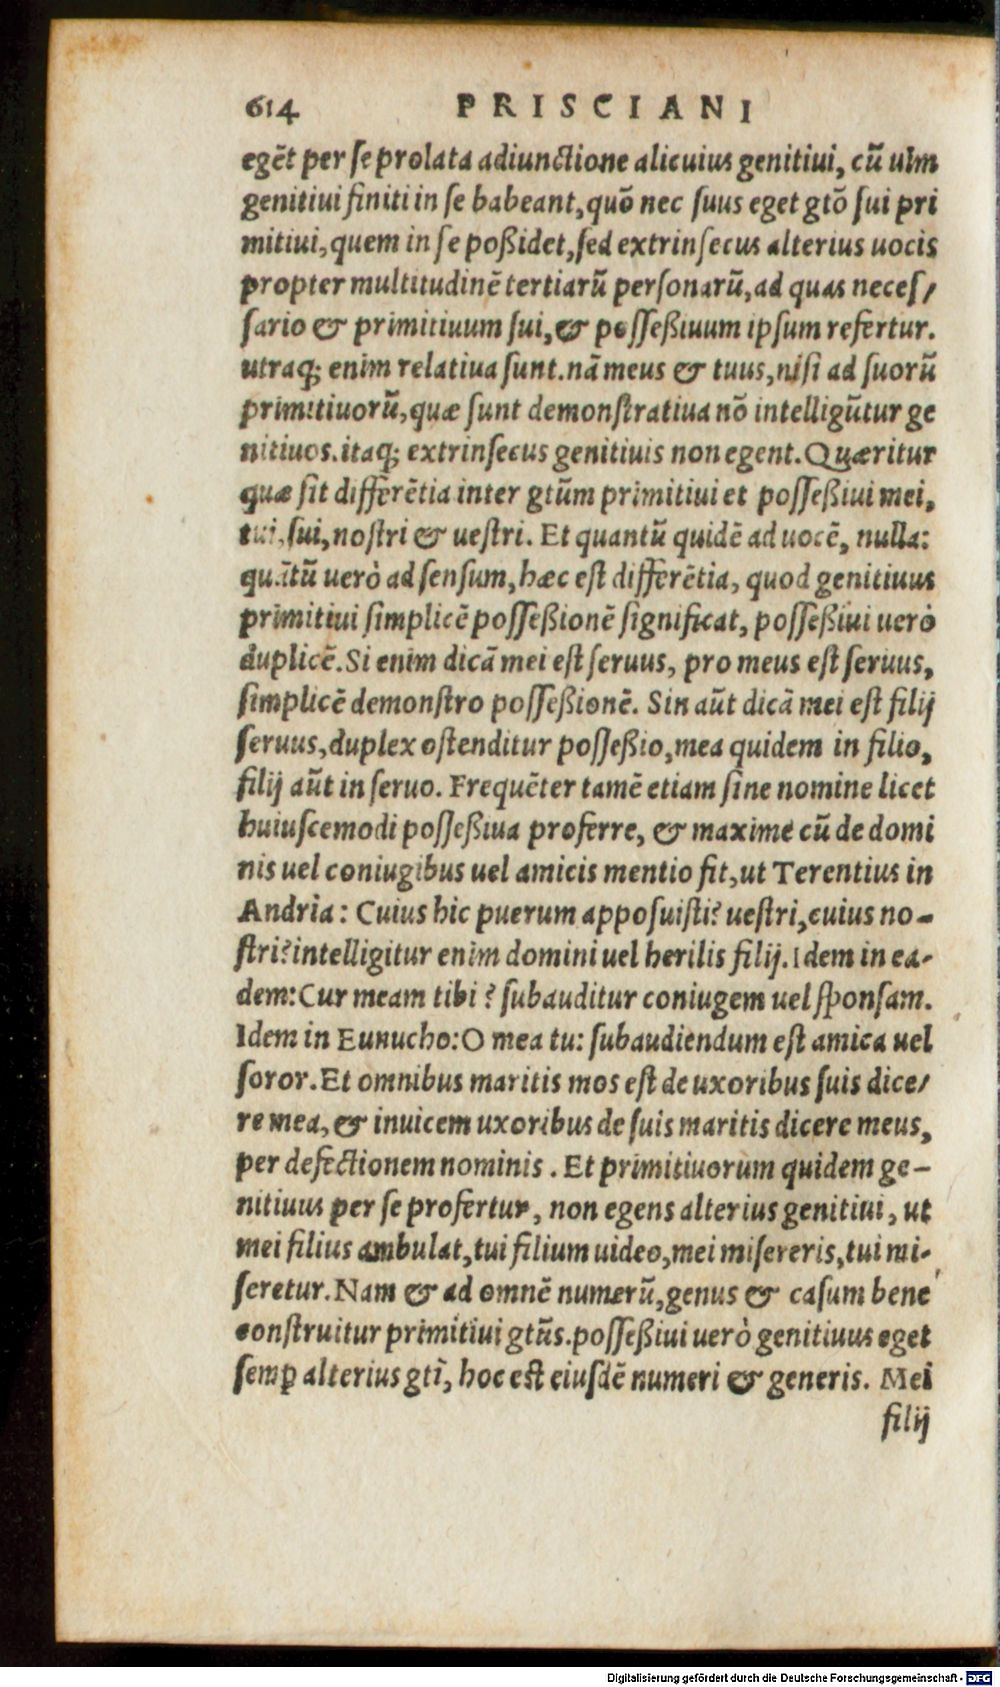 614 PRISCIANI
egēt per ſe prolata adiunctione alicuius genitiui, cū uim
genitiui finiti in ſe habeant, quō nec ſuus eget gtō ſui pri
mitiui, quem in ſe poßidet, ſed extrinſecus alterius uocis
propter multitudinē tertiarū perſonarū, ad quas neceſ/
ſario & primitiuum ſui, & poſſeßiuum ipſum refertur.
utraq; enim relatiua ſunt. nā meus & tuus, niſi ad ſuorū
primitiuorū, quæ ſunt demonſtratiua nō intelligūtur ge
nitiuos. itaq; extrinſecus genitiuis non egent. Quæritur
quæ ſit differētia inter gtūm primitiui et poſſeßiui mei,
tui, ſui, noſtri & ueſtri. Et quantū quidē ad uocē, nulla:
quātū uerò ad ſenſum, hæc eſt differētia, quod genitiuus
primitiui ſimplicē poſſeßionē ſignificat, poſſeßiui uerò
duplicē. Si enim dicā mei eſt ſeruus, pro meus eſt ſeruus,
ſimplicē demonſtro poſſeßionē. Sin aūt dicā mei eſt filij
ſeruus, duplex oſtenditur poſſeßio, mea quidem in filio,
filij aūt in ſeruo. Frequēter tamē etiam ſine nomine licet
huiuſcemodi poſſeßiua proferre, & maxime cū de domi
nis uel coniugibus uel amicis mentio fit, ut Terentius in
Andria: Cuius hic puerum appoſuiſti? ueſtri, cuius no-
ſtri? intelligitur enim domini uel herilis filij. Idem in ea-
dem: Cur meam tibi? ſubauditur coniugem uel ſponſam.
Idem in Eunucho: O mea tu: ſubaudiendum eſt amica uel
ſoror. Et omnibus maritis mos eſt de uxoribus ſuis dice/
re mea, & inuicem uxoribus de ſuis maritis dicere meus,
per defectionem nominis. Et primitiuorum quidem ge-
nitiuus per ſe profertur, non egens alterius genitiui, ut
mei filius ambulat, tui filium uideo, mei miſereris, tui mi-
ſeretur. Nam & ad omnē numerū, genus & caſum bene
conſtruitur primitiui gtūs. poſſeßiui uerò genitiuus eget
ſemꝑ alterius gtī, hoc eſt eiuſdē numeri & generis. Mei
filij
Digitalisierung gefördert durch die Deutsche Forschungsgemeinschaft - DFG